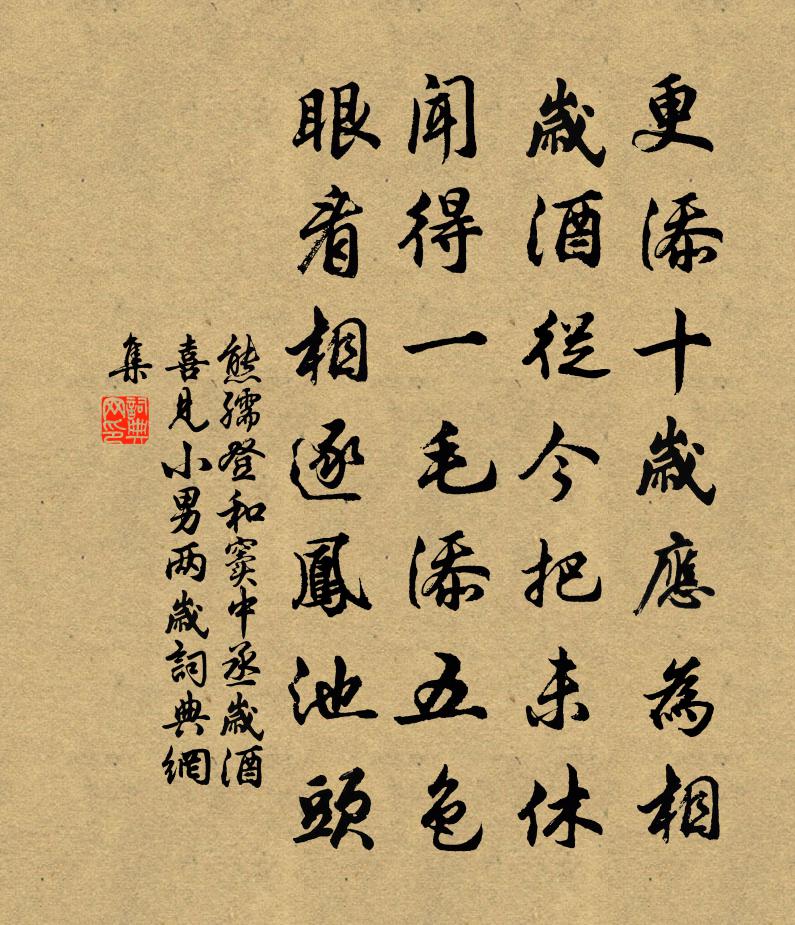 更添十歲應為相
歲酒從今把未休
聞得一毛添五色
眼看相逐鳳池頭
熊孺登和竇中丞歲酒
喜見小男两歲詞典網
集
詞典
网印